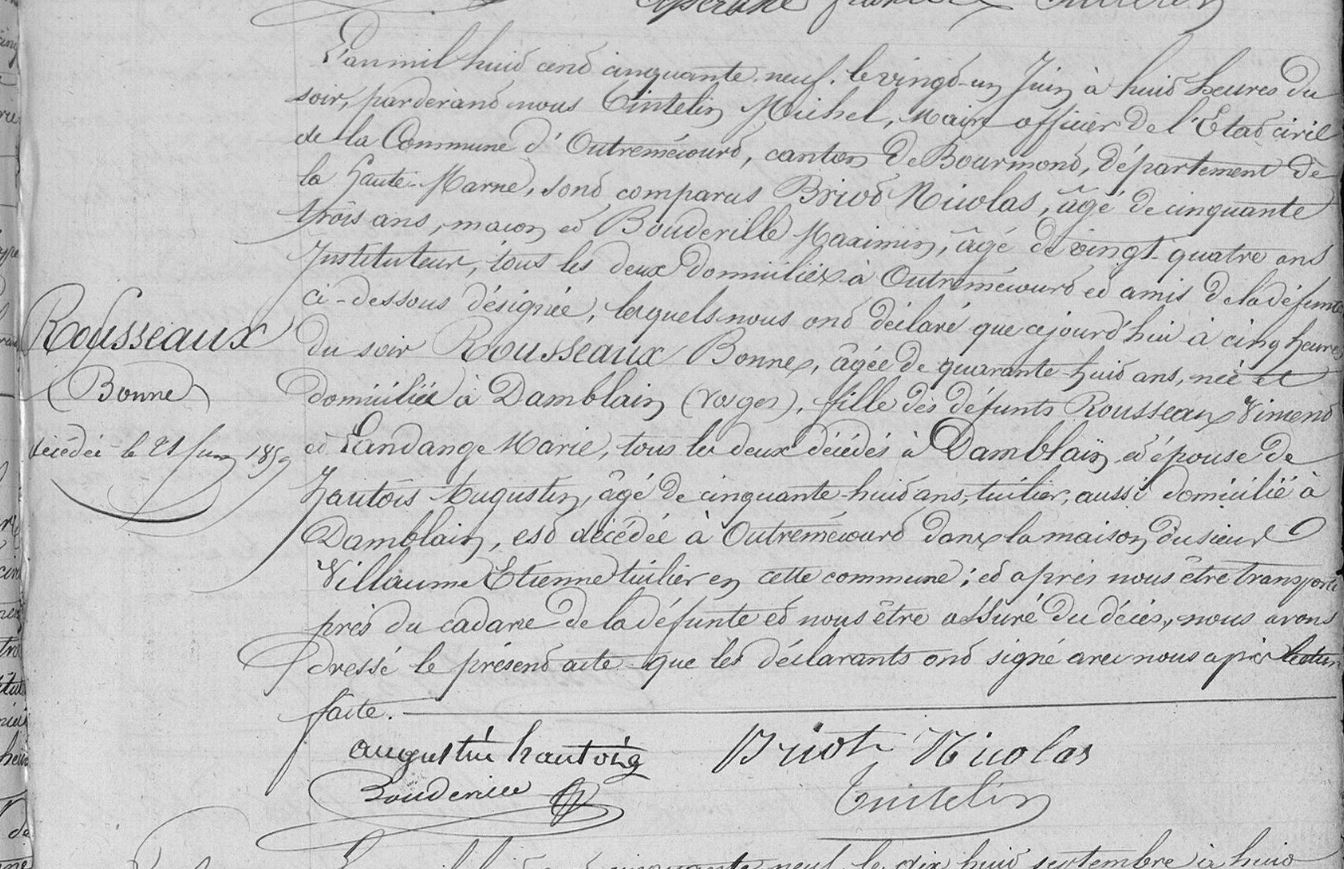 L'an mil huit cent cinquante neuf, le vingt-un Juin à huit heures du
soir, pardevant nous Cintelin Michel, Maire officier de l'Etat civil
de la Commune d'Outremécourt, canton de Bourmont, département de
la Haute-Marne, sont comparus Briot Nicolas, âgé de cinquante
trois ans, maçon et Bouderille Maximin, âgé de vingt-quatre ans
Instituteur, tous les deux domiciliés à Outremécourt et amis de la défunte
ci-dessous désignée, lesquels nous ont déclaré que cejourd'hui à cinq heures
du soir Rousseaux Bonne, âgée de quarante-huit ans, née et
domiciliée à Damblain (Vosges), fille des défunts Rousseaux Vincent
et Landange Marie, tous les deux décédés à Damblain, et épouse de
Hautois Augustin, âgé de cinquante-huit ans, tuilier, aussi domicilié à
Damblain, est décédée à Outremécourt dans la maison du sieur
Villaume Etienne tuilier en cette commune; et après nous être transporté
près du cadavre de la défunte et nous être assuré du décès, nous avons
dressé le présent acte que les déclarants ont signé avec nous après lecture
faite.
Rousseaux
Bonne
décédée le 21 Juin 1859
augustin hautois Briot Nicolas
Bouderille
cinquante neuf le dix huit septembre à huit